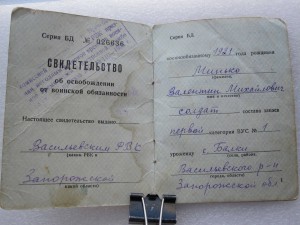 Серия БД № 026636
СВИДЕТЕЛЬСТВО
об освобождении
от воинской обязанности
Настоящее свидетельство выдано
Васильевским РВК
Запорожской
Серия БД
военнообязанному 1921 года рождения
Минько
Валентин Михайлович
солдат состава запаса
первой категории ВУС № 1
уроженцу с. Балки
Васильевского р-н
Запорожской обл